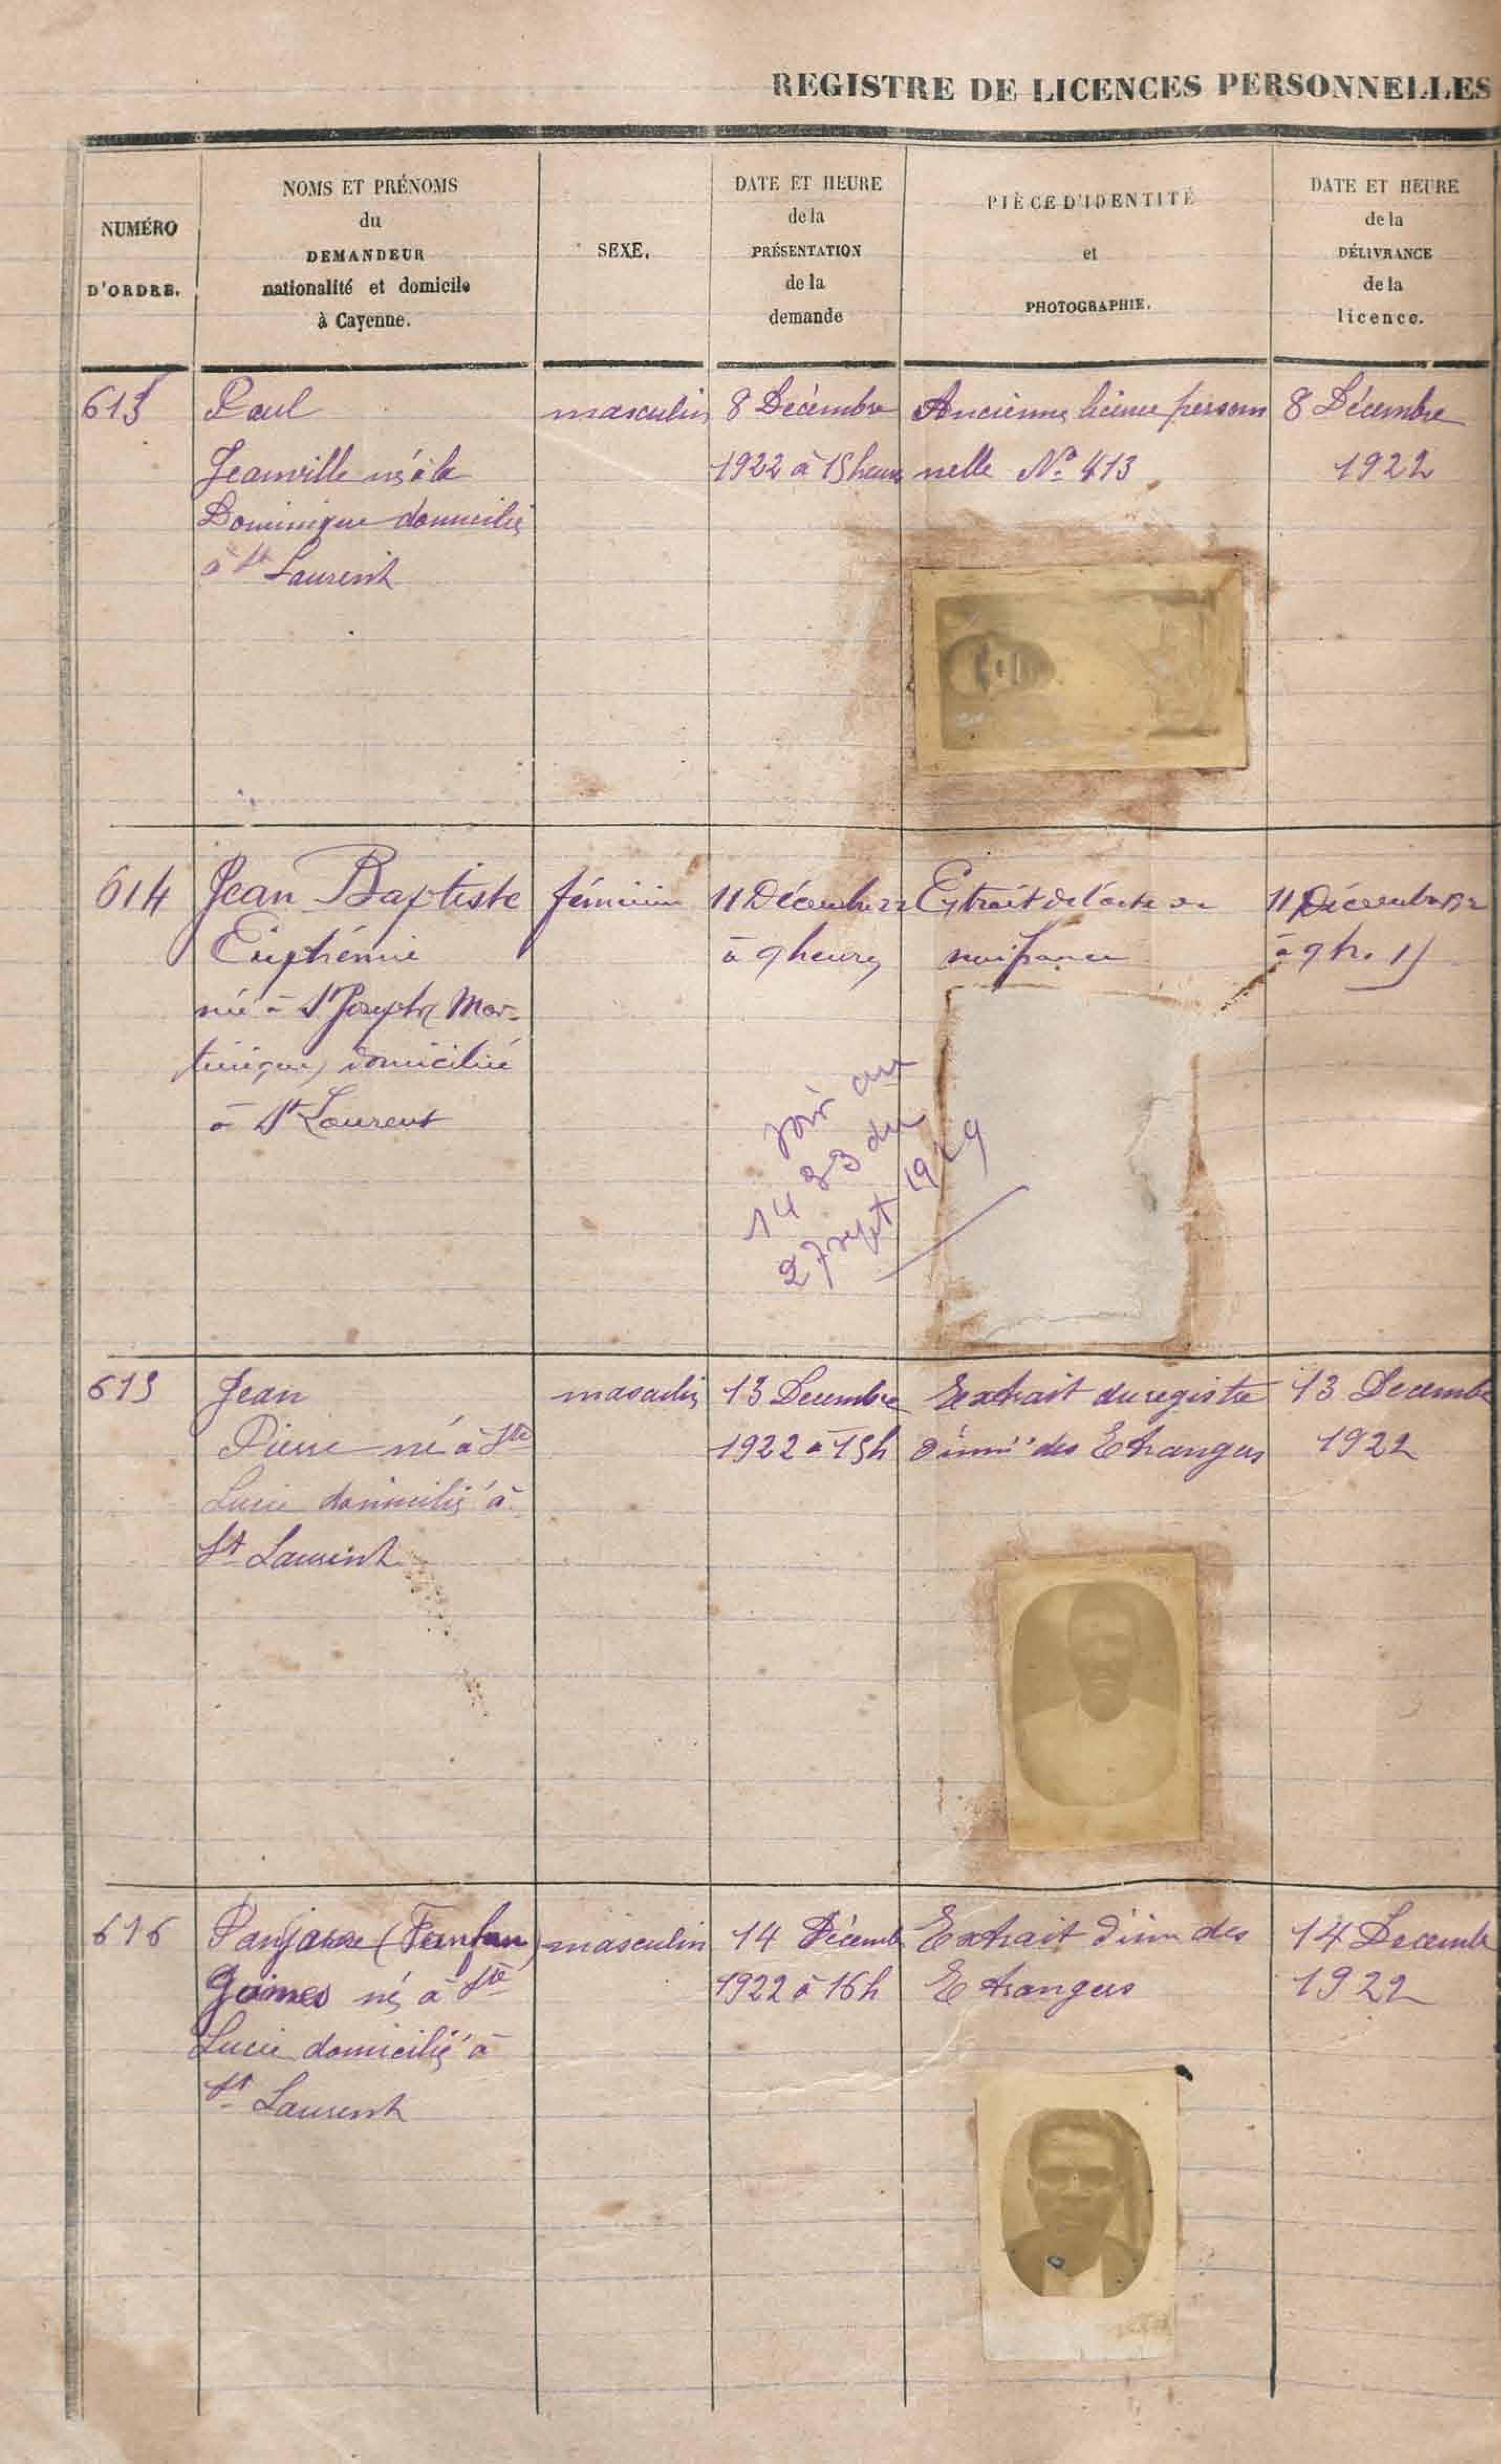 REGISTRE DE LICENCES PERSONNELLES
NUMÉRO
D'ORDRE.
NOMS ET PRÉNOMS
du
DEMANDEUR
nationalité et domicile
à Cayenne.
SEXE.
DATE ET HEURE
de la
PRÉSENTATION
de la
demande
PIÈCE D'IDENTITÉ
et
PHOTOGRAPHIE.
DATE ET HEURE
de la
DÉLIVRANCE
de la
licence.
613
Paul
Jeanville né à la
Dominique domicilié
à St Laurent
masculin
8 Décembre
1922 à 15 heures
Ancienne licence person
nelle No 413
8 Décembre
1922
614
Jean Baptiste
Euphémie
née à St Joseph (Mar-
tinique) domiciliée
à St Laurent
féminin
11 Décembre 22
à 9 heures
voir au
1433 du
27 sept 1929
Extrait de l'acte de
naissance
11 Décembre 22
à 9 h. 15
615
Jean
Pierre né à Ste
Lucie domicilié à
St Laurent
masculin
13 Decembre
1922 à 15h
Extrait du registre
d'imm° des Etrangers
13 Decembre
1922
616
(Fanfan)
James né à Ste
Lucie domicilié à
St Laurent
masculin
14 Décemb
1922 à 16h
Extrait d'im des
Etrangers
14 Decemb
1922